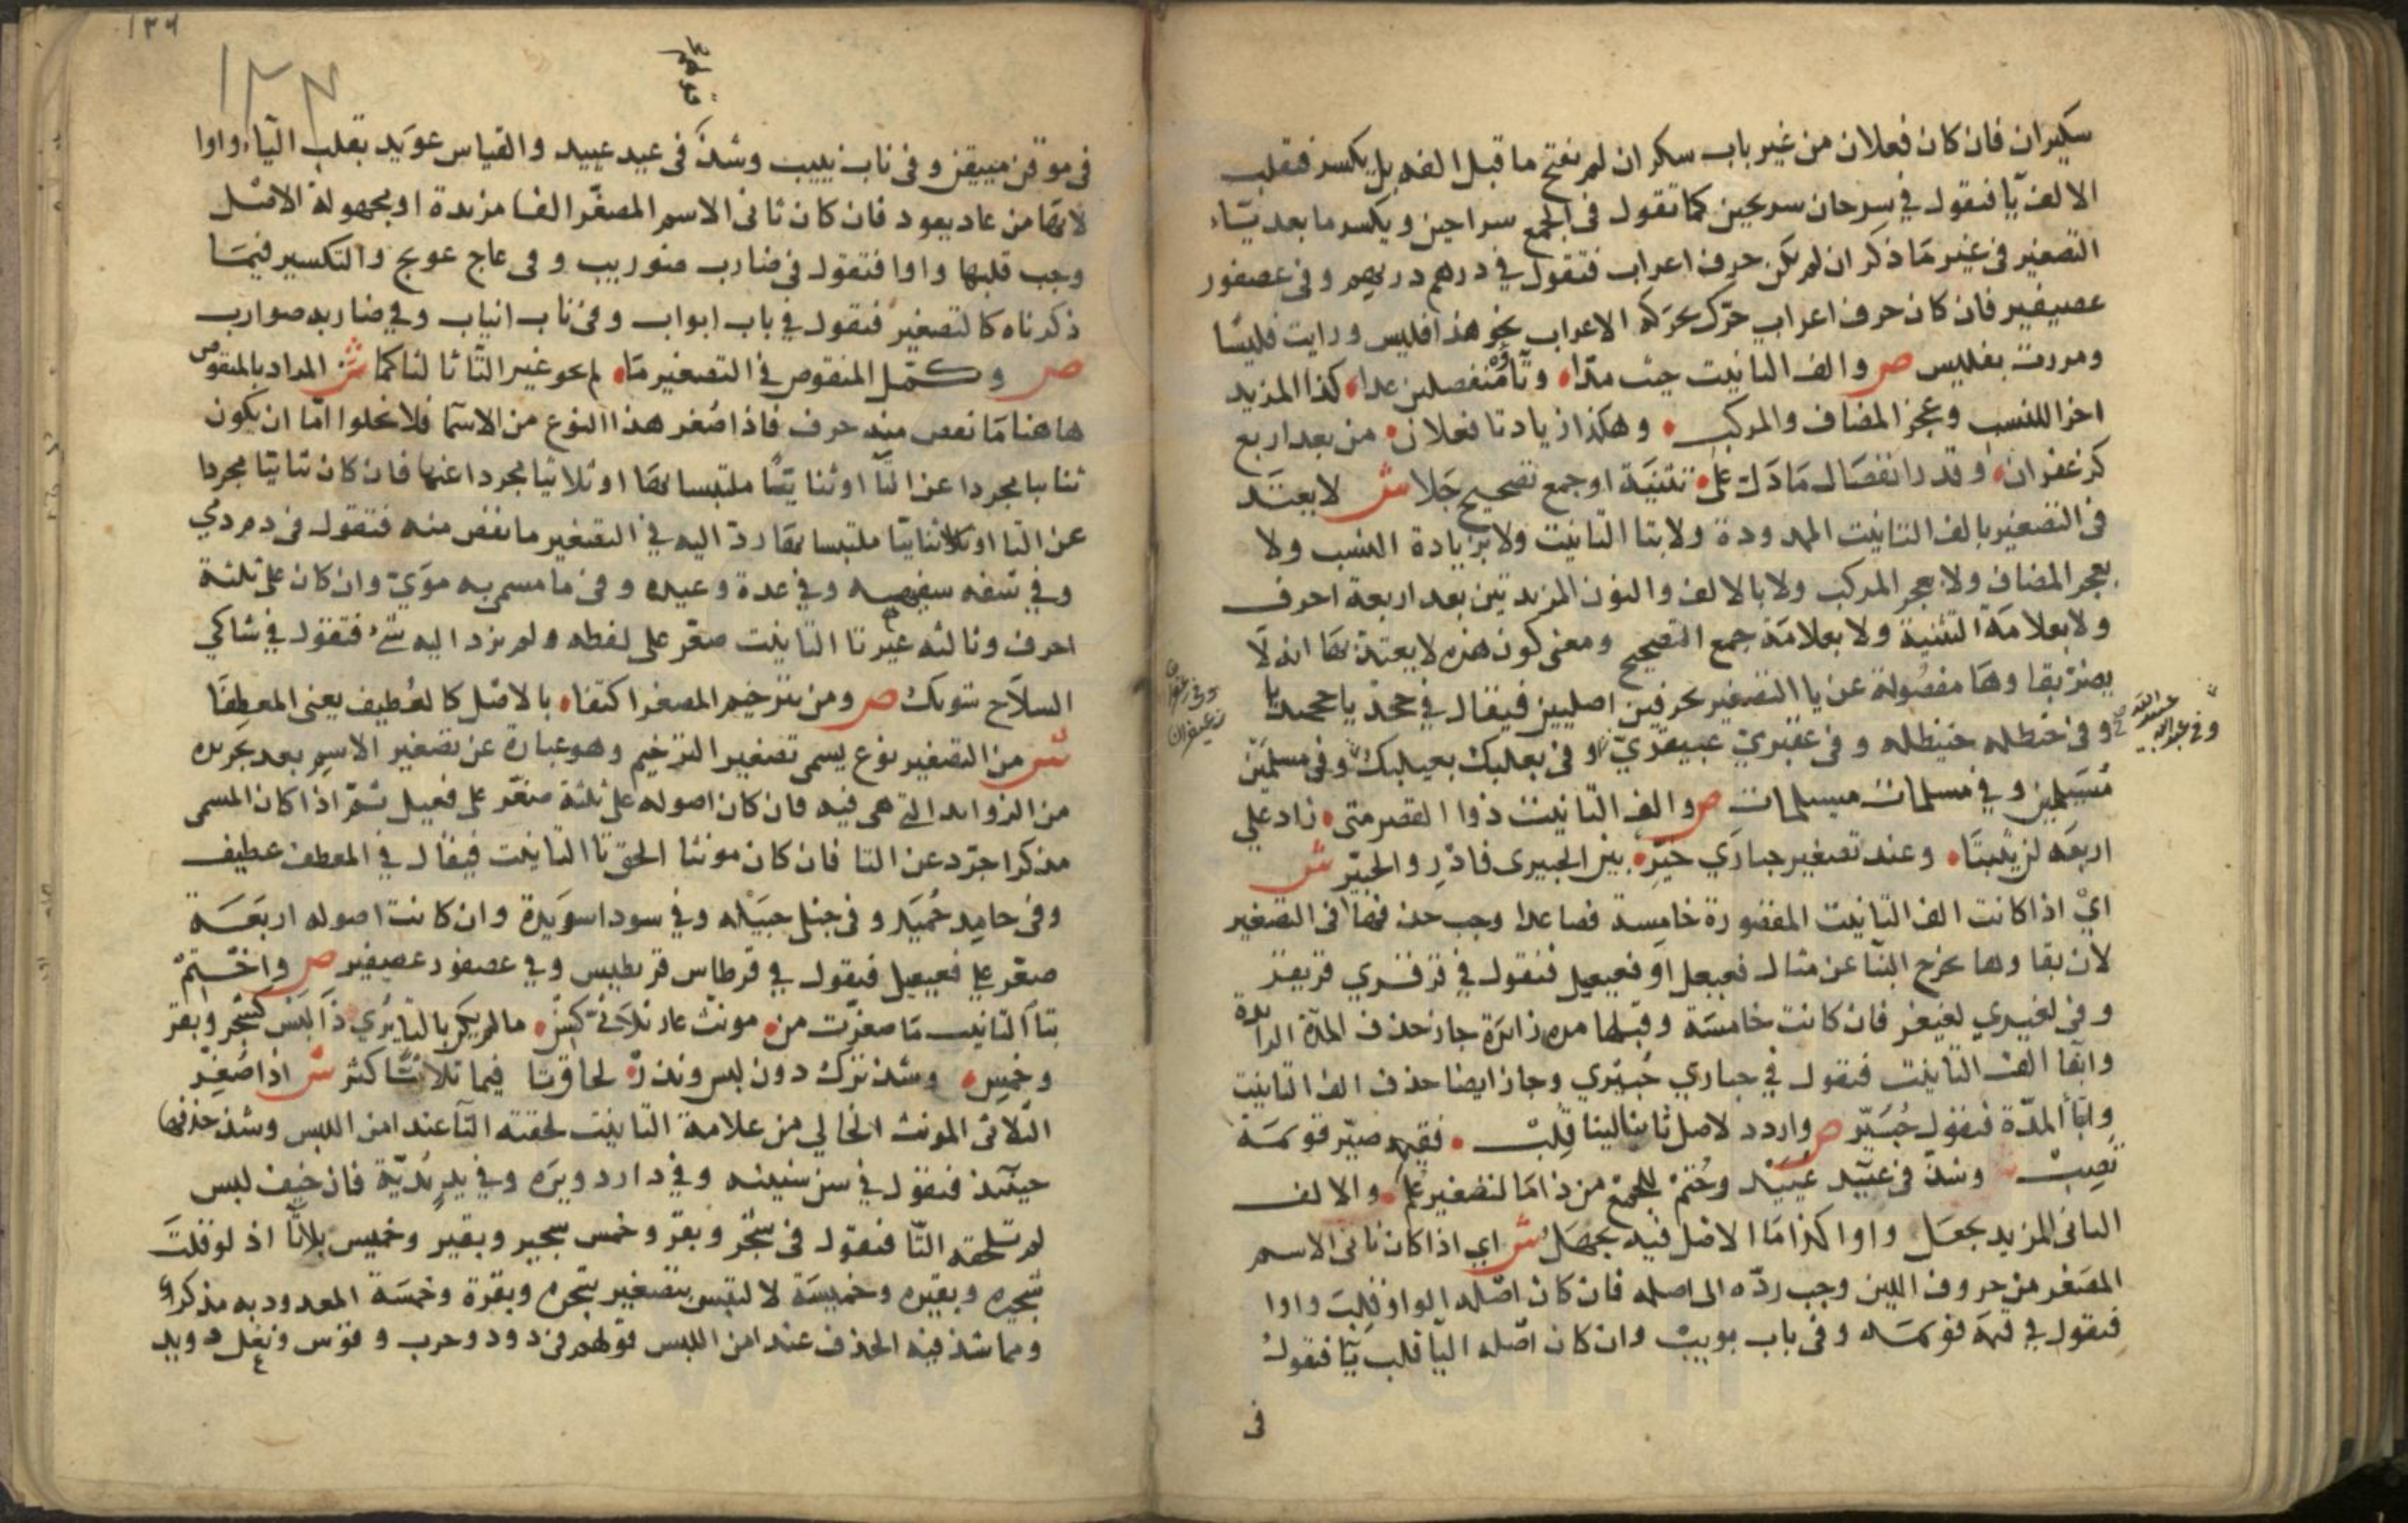 سكيران فان كان فعلان من غير باب سكران لم يفتح ما قبل الفه بل يكسر فتقلب
الالف يا فتقول في سرحان سريحين كما تقول في الجمع سراحين ويكسر ما بعد يآء
التصغير في غير ما ذكر ان لم يكن حرف اعراب فتقول في درهم دريهم وفي عصفور
عصيفير فان كان حرف اعراب حرك بحركة الاعراب نحو هذا فليس ورايت فليسًا
ومررت بفليس ص والف التانيث حيث مدّا وتاؤه منفصلين عدا كذا المزيد
اخرا للنسب وعجز المضاف والمركب وهكذا زيادتا فعلان من بعد اربع
كزعفران وقدر انفصال ما دل على تثنية او جمع تصحيح جلا ش لا يعتد
في التصغير بالف التانيث الممدودة ولا بتا التانيث ولا بزيادة النسب ولا
بعجز المضاف ولا بعجز المركب ولا بالالف والنون المزيدتين بعد اربعة احرف
ولا بعلامة التثنية ولا بعلامة جمع التصحيح ومعنى كون هذه لا يعتد بها انه لا
يضر بقاوها مفصولة عن يا التصغير بحرفين اصليين فيقال في جحدبا جحيدبا
وفي حنظله حنيظله وفي عبقري عبيقري وفي بعلبك بعيلبك وفي مسلمين
وفي عبدالله عبيدالله
وفي زعفران زعيفران
مُسيلمين وفي مسلمات مسيلمات ص والف التانيث ذوا القصر متى زاد على
اربعة لن يثبتا وعند تصغير حبارى خيّر بين الحبيرى فادر والحبيّر ش
اي اذا كانت الف التانيث المقصورة خامسة فصاعدا وجب حذفها في التصغير
لان بقاوها يخرج البنا عن مثال فعيعل او فعيعيل فتقول في قرقري قريقر
وفي لغيزي لغيغز فان كانت خامسة وقبلها مدة زائدة جاز حذف المدة الزائدة
وابقا الف التانيث فتقول في حباري حُبيري وجاز ايضا حذف الف التانيث
وابقا المدّة فتقول حُبيّر ص واردد لاصل ثانيا لينا قلب فقيمة صيّر قويمة
تصب وشذ في عيد عييد وحُتم للجمع من ذا ما لتصغير علم والالف
الثاني المزيد يجعل واوا كذا ما الاصل فيه يجهل ش اي اذا كان ثاني الاسم
المصغر من حروف اللين وجب ردّه الى اصله فان كان اصله الواو قلبت واوا
فتقول في قيمة قويمه وفي باب بويب وان كان اصله اليا قلب يّا فتقول
في
١٣٩
في موقن مييقن وفي ناب نييب وشذ في عيد عييد والقياس عويد بقلب الياء واوا
لانها من عاد يعود فان كان ثاني الاسم المصغّر الفا مزيدة او مجهولة الاصل
وجب قلبها واوا فتقول في ضارب ضويرب وفي عاج عويج والتكسير فيما
ذكرناه كالتصغير فتقول في باب ابواب وفي ناب انياب وفي ضاربه ضوارب
ص وكمّل المنقوص في التصغير ما لم يحو غير التا ثالثا كما ش المراد بالمنقوص
هاهنا ما نقص منه حرف فاذا صُغر هذا النوع من الاسما فلا يخلوا امّا ان يكون
ثنائيا مجردا عن التا او ثنائيا ملتبسا بها او ثلاثيا مجردا عنها فان كان ثنائيا مجردا
عن التا او ثنائيا ملتبسا بها رد اليه في التصغير ما نقص منه فتقول في دم دمي
وفي شفه شفيهه وفي عدة وعيده وفي ما مسمى به مويّ وان كان على ثلثة
احرف وثالثه غير تا التانيث صغّر على لفظه ولم يزد اليه شئ فتقول في شاكي
السلاح شويك ص ومن بترخيم المصغر اكتفا بالاصل كالعُطيف يعني المعطفا
ش من التصغير نوع يسمى تصغير الترخيم وهو عبارة عن تصغير الاسم بعد تجريده
من الزوايد التي هي فيه فان كان اصوله على ثلثة صغّر على فعيل ثمّ اذا كان المسمى
مذكرا جرّد عن التا فان كان مونثا الحق تا التانيث فيقال في المعطف عطيف
وفي حامد حُميد وفي حبلى حبيله وفي سودا سويدة وان كانت اصوله اربعة
صغّر على فعيعيل فتقول في قرطاس قريطيس وفي عصفور عصيفير ص واختم
بتا التانيث ما صغرت من مونث عار ثلاثي كسن ما لم يكن بالتا يُري ذا لبس كشجر وبقر
وخمس وشذ ترك دون لبس وندر لحاق تا فيما ثلاثيّا كثر ش اذا صُغّر
الثلاثي المونث الخالي من علامة التانيث لحقته التا عند امن اللبس وشذ حذفها
حينئذ فتقول في سن سنينه وفي دار دويره وفي يد يُديّة فان خيف لبس
لم تلحقه التّا فتقول في شجر وبقر وخمس شجير وبقير وخميس بلا تا اذ لو قلت
شجيره وبقيره وخميسة لالتبس بتصغير شجره وبقرة وخمسة المعدود به مذكر
ومما شذ فيه الحذف عند امن اللبس قولهم في ذود وحرب وقوس ونعل ذويد